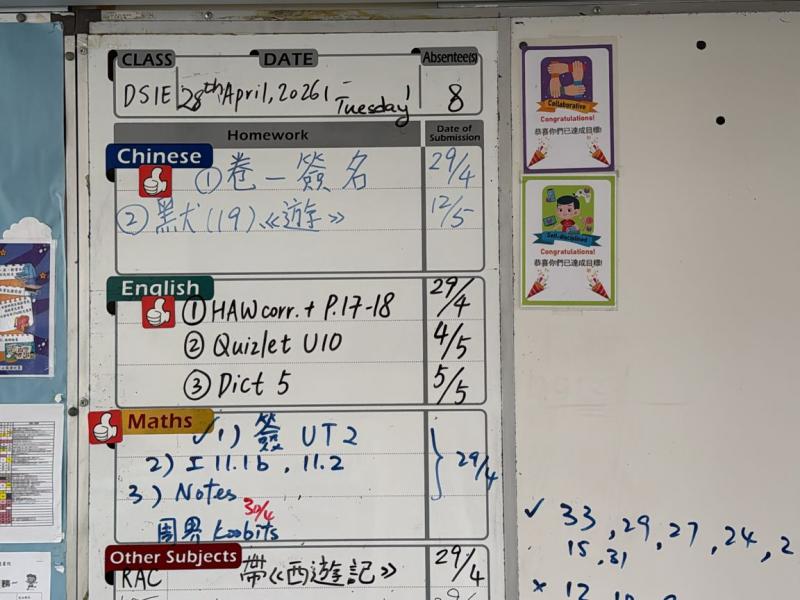 CLASS DATE Absentee(s)
D5IE 28th April, 2026 Tuesday 8
Homework Date of Submission
Chinese
① 卷一簽名 29/4
② 默(19)《遊》 12/5
English
① HAW corr. + P.17-18 29/4
② Quizlet U10 4/5
③ Dict 5 5/5
Maths
✓1) 簽 UT2
2) I 11.1b, 11.2 29/4
3) Notes
30/4
周界 Koobits
Other Subjects
RAC 帶《西遊記》 29/4
Collaborative
Congratulations!
恭喜你們已達成目標!
Self-disciplined
Congratulations!
恭喜你們已達成目標!
✓ 33, 29, 27, 24,
15, 31
× 12